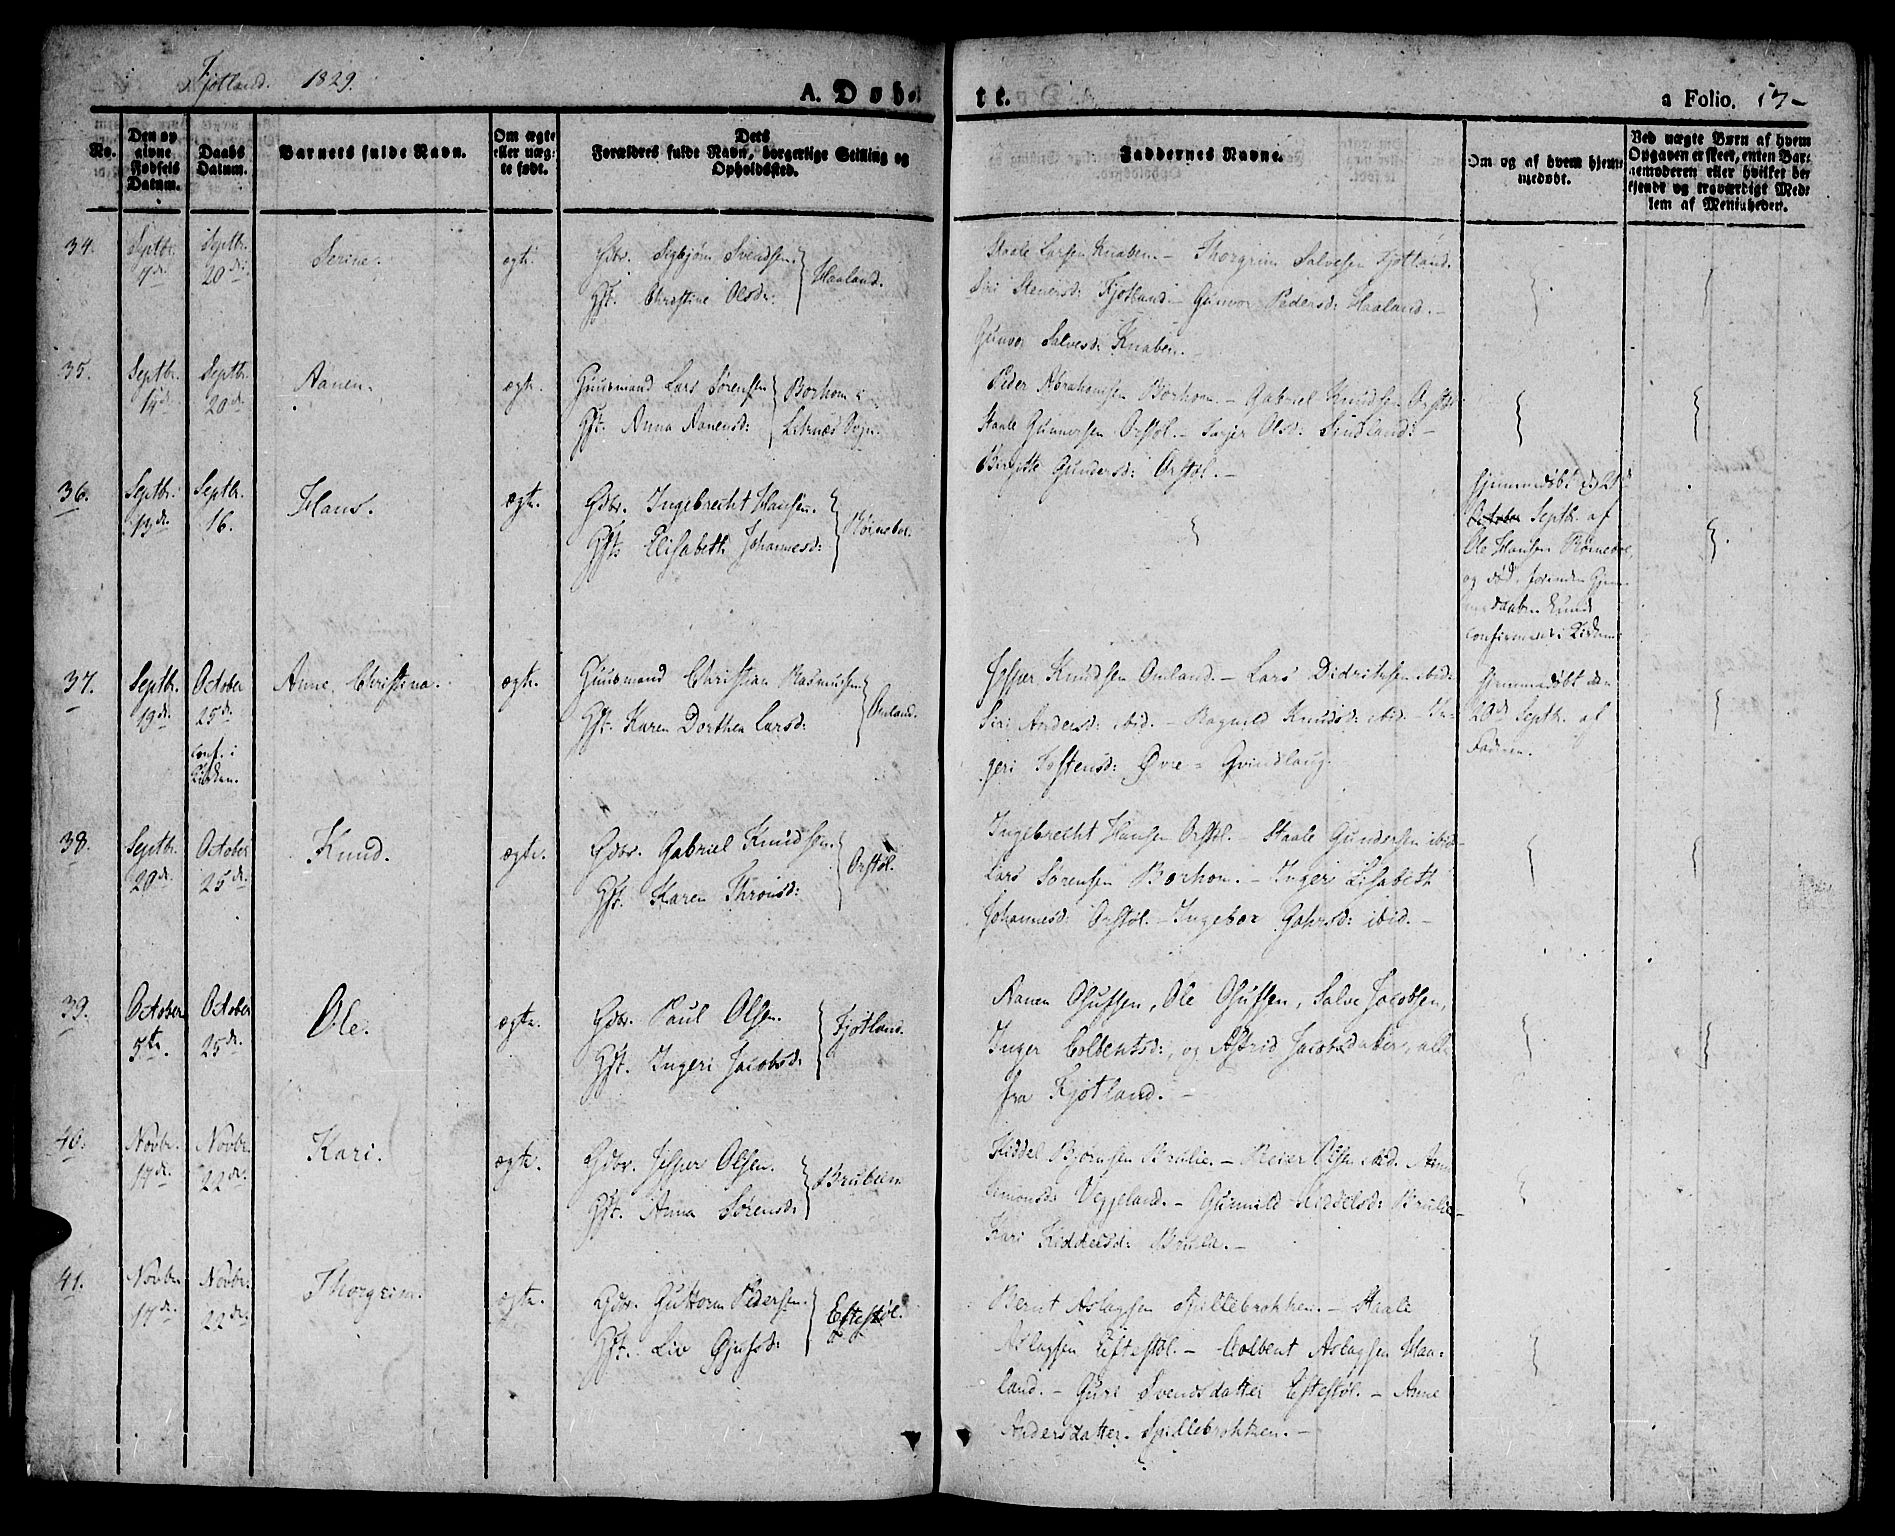 Fjotland. 1829.
A. Døb-
te.
a Folio. 57-
No.
Den op
givne
Fødsels
Datum.
Daabs
Datum.
Barnets fulde Navn.
Om ægte
eller uæg-
te født.
Dets
Forældres fulde Navn, borgerlige Stilling og
Opholdssted.
Faddernes Navne.
Om og af hvem hjem-
medøbt.
Ved uægte Børn af hvem
Opgaven er skeet, enten Bar-
nemoderen eller hvilket be-
kjendt og troværdigt Med-
lem af Menigheden.
34. Septbr. 7de Septbr. 20de Serine. ægte. Gdbr. Sigbjørn Svendsen.
Hst. Christine Olsd: Haaland.
Staale Larsen Knaben. - Thorgrim Salvesen Fjotland.
Siri Stensd: Fjotland - Gunvor Pedersd: Haaland. -
Gunvor Salvesd: Knaben. -
35. Septbr. 14de Septbr. 20de Aanen. ægte. Huusmand Lars Sørensen Borhom i
Hst. Anna Aanensd: Sogn.
Peder Abrahamsen Borhom. - Gabriel Knudsen
Staale Gundersen Orstøl. - Olsd: -
Birgitte Gundersd: Orstøl. -
36. Septbr. 13de Septbr. 16. Hans. ægte. Gdbr. Ingebrecht Hansen.
Hst. Elisabeth Johannesd:
Hjemmedøbt d 21d
October Septbr. af
Ole Hansen
og død, forinden Hjem-
medaaben kunde
confirmeres i Kirken.
37. Septbr. 19de October 25de conf. i Kirken. Anne Christina. ægte. Huusmand Christian Rasmussen
Hst. Karen Dorthea Larsd: Omland.
Jesper Knudsen Omland. - Lars Didriksen ibid:
Siri Andersd: ibid. - Ragnild Knudsd: ibid - In-
geri Jostensd: Øvre - Qvindlaug.
Hjemmedøbt den
20de Septbr. af
Faderen.
38. Septbr. 20de October 25de Knud. ægte. Gdbr. Gabriel Knudsen.
Hst. Karen Thronsd: Orstøl.
Ingebrecht Hansen Orstøl. Staale Gundersen ibid -
Lars Sørensen Borhom. - Ingeri Lisabeth
Johannesd: Orstøl. - Ingebor Gabrsd: ibid. -
39. October 5te October 25de Ole. ægte. Gdbr. Paul Olsen.
Hst. Ingeri Jacobsd: Fjotland.
Aanen Osufsen, Ole Osufsen, Salve Jacobsen,
Inger Colbentsd:, og Astrid Jacobsdatter, alle
fra Fjotland. -
40. Novbr. 14de Novbr. 22de Kari. ægte. Gdbr. Jesper Olsen.
Hst. Anna Sørensd:
Kiddel Bjørnsen - Reier Olsen ibid. Anna
Simonsd: Veggeland. - Gunnild Kiddelsd:
Kari Kiddelsd:
41. Novbr. 17de Novbr. 22de Thorgrim. ægte. Gdbr. Guttorm Pedersen.
Hst. Liv Gjufsd: Eftestøl.
Bernt Aslagsen Spillebrokken. - Staale
Aslagsen Eftestøl. - Colbent Aslagsen Haa-
land. - Guri Svendsdatter Eftestøl. - Anne
Andersdatter. Spillebrokken. -